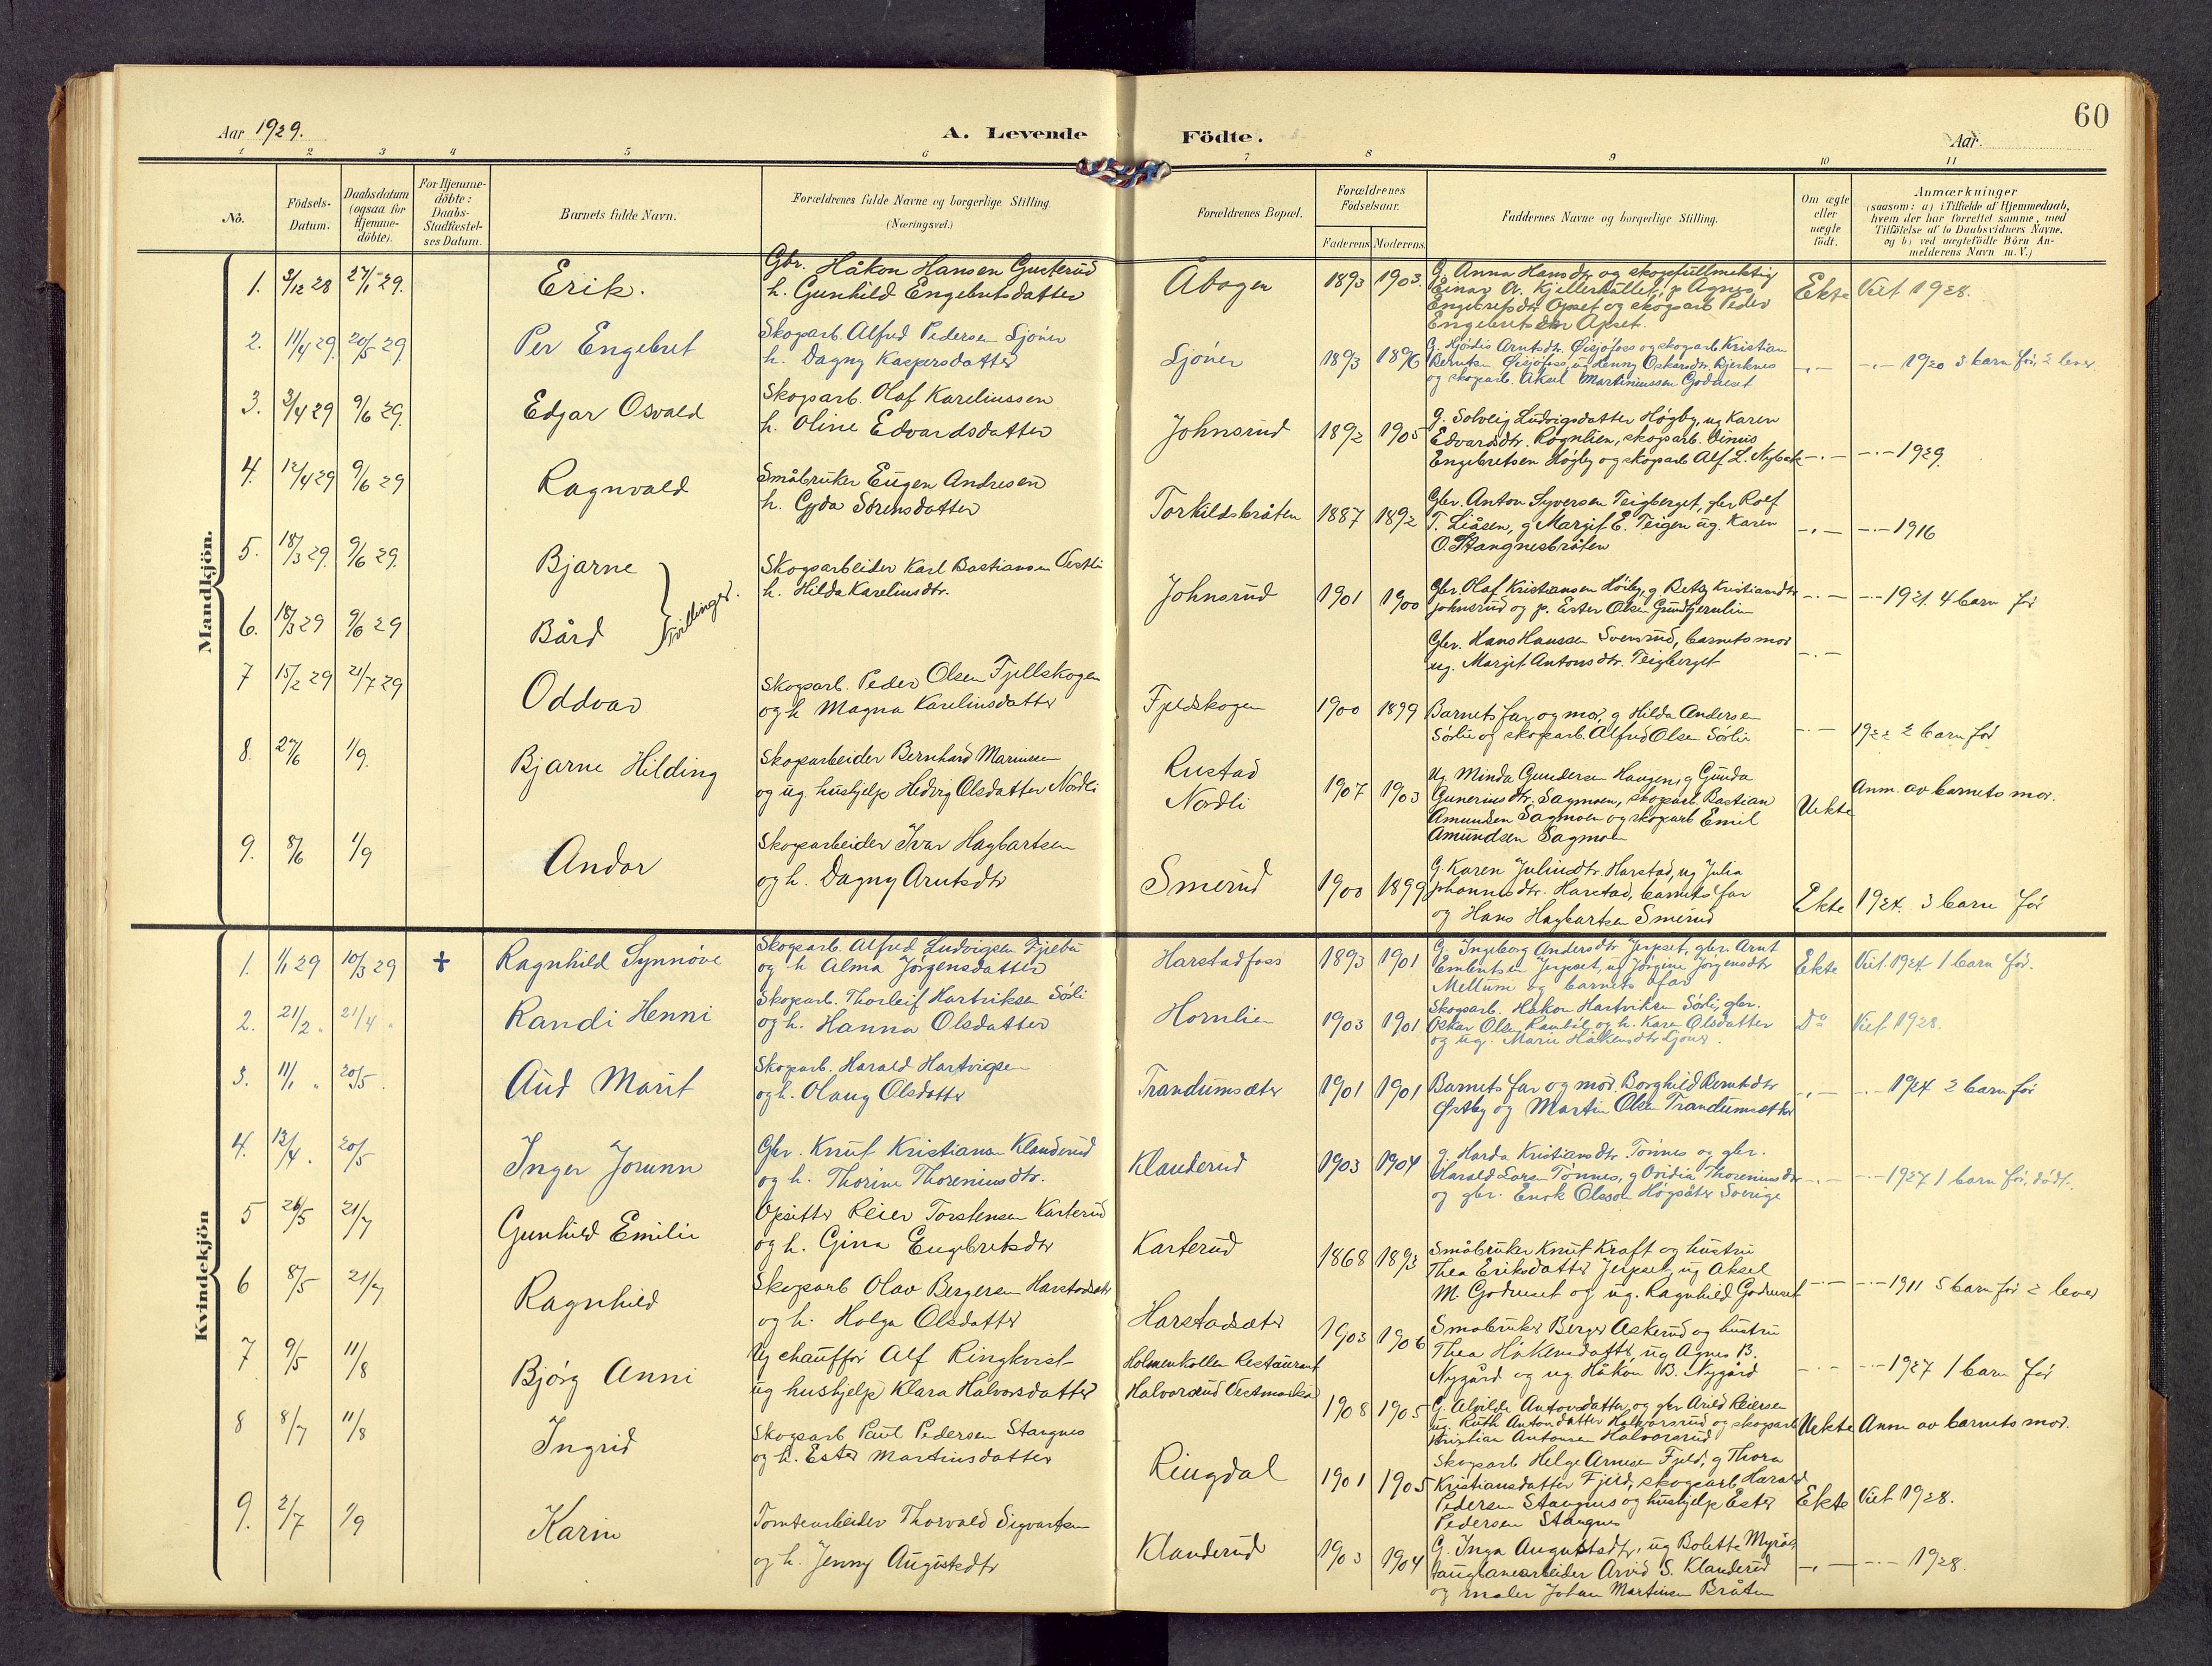 60
Aar 1929.
A. Levende Födte.
Aar.
1 2 3 4 5 6 7 8 9 10 11
No.
Födsels-Datum.
Daabsdatum (ogsaa for Hjemme-döbte).
For Hjemme-döbte: Daabs-Stadfæstel-ses Datum.
Barnets fulde Navn.
Forældrenes fulde Navne og borgerlige Stilling
(Næringsvei.)
Forældrenes Bopæl.
Forældrenes Födselsaar.
Faderens Moderens.
Faddernes Navne og borgerlige Stilling.
Om ægte eller uægte födt.
Anmærkninger
(saasom: a) i Tilfælde af Hjemmedaab,
hvem der har forrettet samme, med
Tilföielse af to Daabsvidners Navne.
og b) ved uægtefödte Börn An-
melderens Navn m.V.)
Mandkjön.
1. 3/12 28 27/1 29. Erik.
Gbr. Håkon Hansen Gusterud
h. Gunhild Engebretsdatter
Åbogen 1893 1903.
G. Anna Hansdtr og skogsfullmektig
Einar Kjellerhaltet, p Agnes
Engebretsdtr Opset og skogsarb Peder
Engebretsen Opset.
Ekte Viet 1928.
2. 11/4 29. 20/5 29 Per Engebret
Skogsarb. Alfred Pedersen Ljöner
h. Dagny Kaspersdatter
Ljöner 1893 1896
G. Hjördis Arntsdtr. Öisjöfoss og skogsarb. Kristian
Berntsen Öisjöfoss, ug Jenny Oskarsdtr. Bjerknes
og skogsarb. Aksel Martiniussen Godreset
-„- -„- 1920 3 barn för, 2 lever
3. 3/4 29 9/6 29. Edgar Osvald
Skogsarb. Olaf Kareliussen
h. Oline Edvardsdatter
Johnsrud 1892 1905
g. Solveig Ludvigsdatter Högby, ug Karen
Edvardsdtr. Rognlien, skogsarb. Einus
Engebretsen Högby og skogsarb Alf L. Nybak
-„- -„- 1929.
4. 12/4 29 9/6 29 Ragnvald
Småbruker Eugen Andresen
h. Gyda Sörensdatter
Torkildsbråten 1887 1892
Gbr. Anton Syversen Teigberget, gbr Rolf
T. Liåsen, g Margit E. Teigen ug. Karen
O. Stangnesbråten
-„- -„- 1916
5. 18/3 29. 9/6 29. Bjarne
Skogsarbeider Karl Bastiansen Vestli
h. Hilda Kareliusdtr.
Tvillinger.
Johnsrud 1901 1900
Gbr. Olaf Kristiansen Höiby, g Betzy Kristiansdtr
Johnsrud og p. Ester Olsen Gundhjernlien
-„- -„- 1921. 4 barn för
6. 18/3 29 9/6 29 Bård
Gbr. Hans Hansen Svensrud, barnets mor
ug. Margit Antonsdtr. Teigberget
-„-
7 15/2 29 21/7 29 Oddvar
Skogsarb. Peder Olsen Fjellskogen
og h Magna Kareliusdatter
Fjeldskogen 1900 1899
Barnets far og mor, g Hilda Andersen
Sörlie og skogsarb. Alfred Olsen Sörlie
-„- 1922 2 barn för
8. 27/6 1/9. Bjarne Hilding
Skogsarbeider Bernhard Marinusen
og ug. hushjelp Hedvig Olsdatter Nordli
Rustad
Nordli
1907 1903
Ug Minda Gundersen Haugen, g Gunda
Guneriusdtr. Sagmoen, skogsarb. Bastian
Amundsen Sagmoen og skogsarb Emil
Amundsen Sagmoen
Uekte Anm. av barnets mor.
9. 8/6 1/9 Andor
Skogsarbeider Ivar Hagbartsen
og h. Dagny Arntsdtr
Smerud 1900 1899
G. Karen Juliusdtr. Harstad, ug Julia
Johannesdtr. Harstad, barnets far
og Hans Hagbartsen Smerud
Ekte 1924. 3 barn för
Kvindekjön
1. 1/1 29 10/3 29 + Ragnhild Synnöve
Skogsarb. Alfred Ludvigsen Fjeldbu
og h Alma Jörgensdatter
Harstadfoss 1893 1901
G. Ingeborg Andersdtr Jerpset, gbr. Arnt
Embretsen Jerpset, ug Jörgine Jörgensdtr
Mellum og barnets far
Ekte Viet. 1924 1 barn för.
2. 21/2 „ 21/4 „ Randi Henni
Skogsarb. Thorleif Hartviksen Sörli
og h. Hanna Olsdatter
Hornlien 1903 1901
Skogsarb. Håkon Hartviksen Sörli, gbr.
Oskar Olsen og h. Karen Olsdatter
og ug. Marie Håkensdtr Ljöner.
Do Viet 1928.
3. 11/1 „ 20/5. Aud Marit
Skogsarb. Harald Hartvigsen
og h. Olaug Olsdatter
Trandumsæter 1901 1901
Barnets far og mor Borghild Berntsdtr
Östby og Martin Olsen Trandumsæter
-„- -„- 1924 2 barn för
4. 13/4. 20/5 Inger Jorunn
Gbr. Knut Kristiansen Klanderud
og h. Thorine Thoreniusdtr.
Klanderud 1903 1904
g. Harda Kristiansdtr Tönnes og gbr.
Harald Larsen Tönnes, g Ovidia Thoreniusdtr
og gbr. Enok Olsson Högsäter Sverige
-„- -„- 1927 1 barn för, dödt.
5 26/5 21/7 Gunhild Emilie
Opsitter Reier Torstensen Karterud
og h. Gina Engebretsdtr
Karterud 1868 1893
Småbruker Knut Kraft og hustru
Thea Eriksdatter Jerpset, ug Aksel
M. Godreset og ug. Ragnhild Godreset
-„- -„- 1911 5 barn för 2 lever
6 8/5 21/7 Ragnhild
Skogsarb Olav Bergersen Harstadsæter
og h. Helga Olsdatter
Harstadsæter 1903 1906
Småbruker Berger Askerud og hustru
Thea Håkensdatter, ug Agnes B.
Nygård og ug. Håkon B. Nygård
-„- -„- 1927 1 barn för
7 9/5 11/8 Bjørg Anni
Ug chauffør Alf Ringkvist
ug hushjelp Klara Halvorsdatter
Holmenkollen Restaurant
Halvorsrud Vestmarka
1908 1905
G. Alvilde Antonsdatter og gbr Arvid Reiersen
ug. Ruth Antonsdatter Halvorsrud og skogsarb
Kristian Antonsen Halvorsrud
Uekte Anm av barnets mor.
8 8/7 11/8 Ingrid
Skogsarb Paul Pedersen Stangnes
og h. Ester Martinsdatter
Ringdal 1901 1905
Skogsarb Helge Arnesen Fjeld, g Thora
Kristiansdatter Fjeld, skogsarb Harald
Pedersen Stangnes og hushjelp Ester
Pedersen Stangnes
Ekte Viet 1928.
9. 2/7 1/9 Karin
Tomtearbeider Thorvald Sigvartsen
og h. Jenny Augustsdtr
Klanderud 1903 1904
G. Inga Augustsdtr, ug Bolette Myrås
Anleggarbeider Arvid S. Klanderud
og maler Johan Martinsen Bråten
-„- -„- 1928.